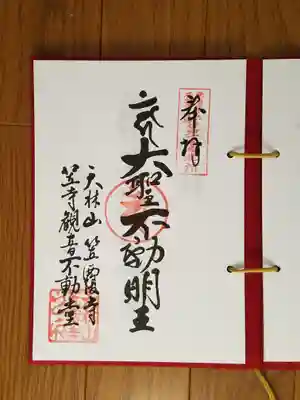 奉拝
大聖不動明王
天林山笠覆寺
笠寺観音不動堂